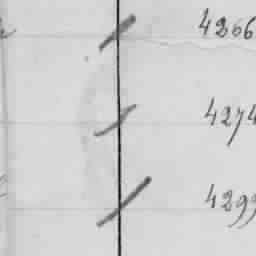 4266
4274
4299